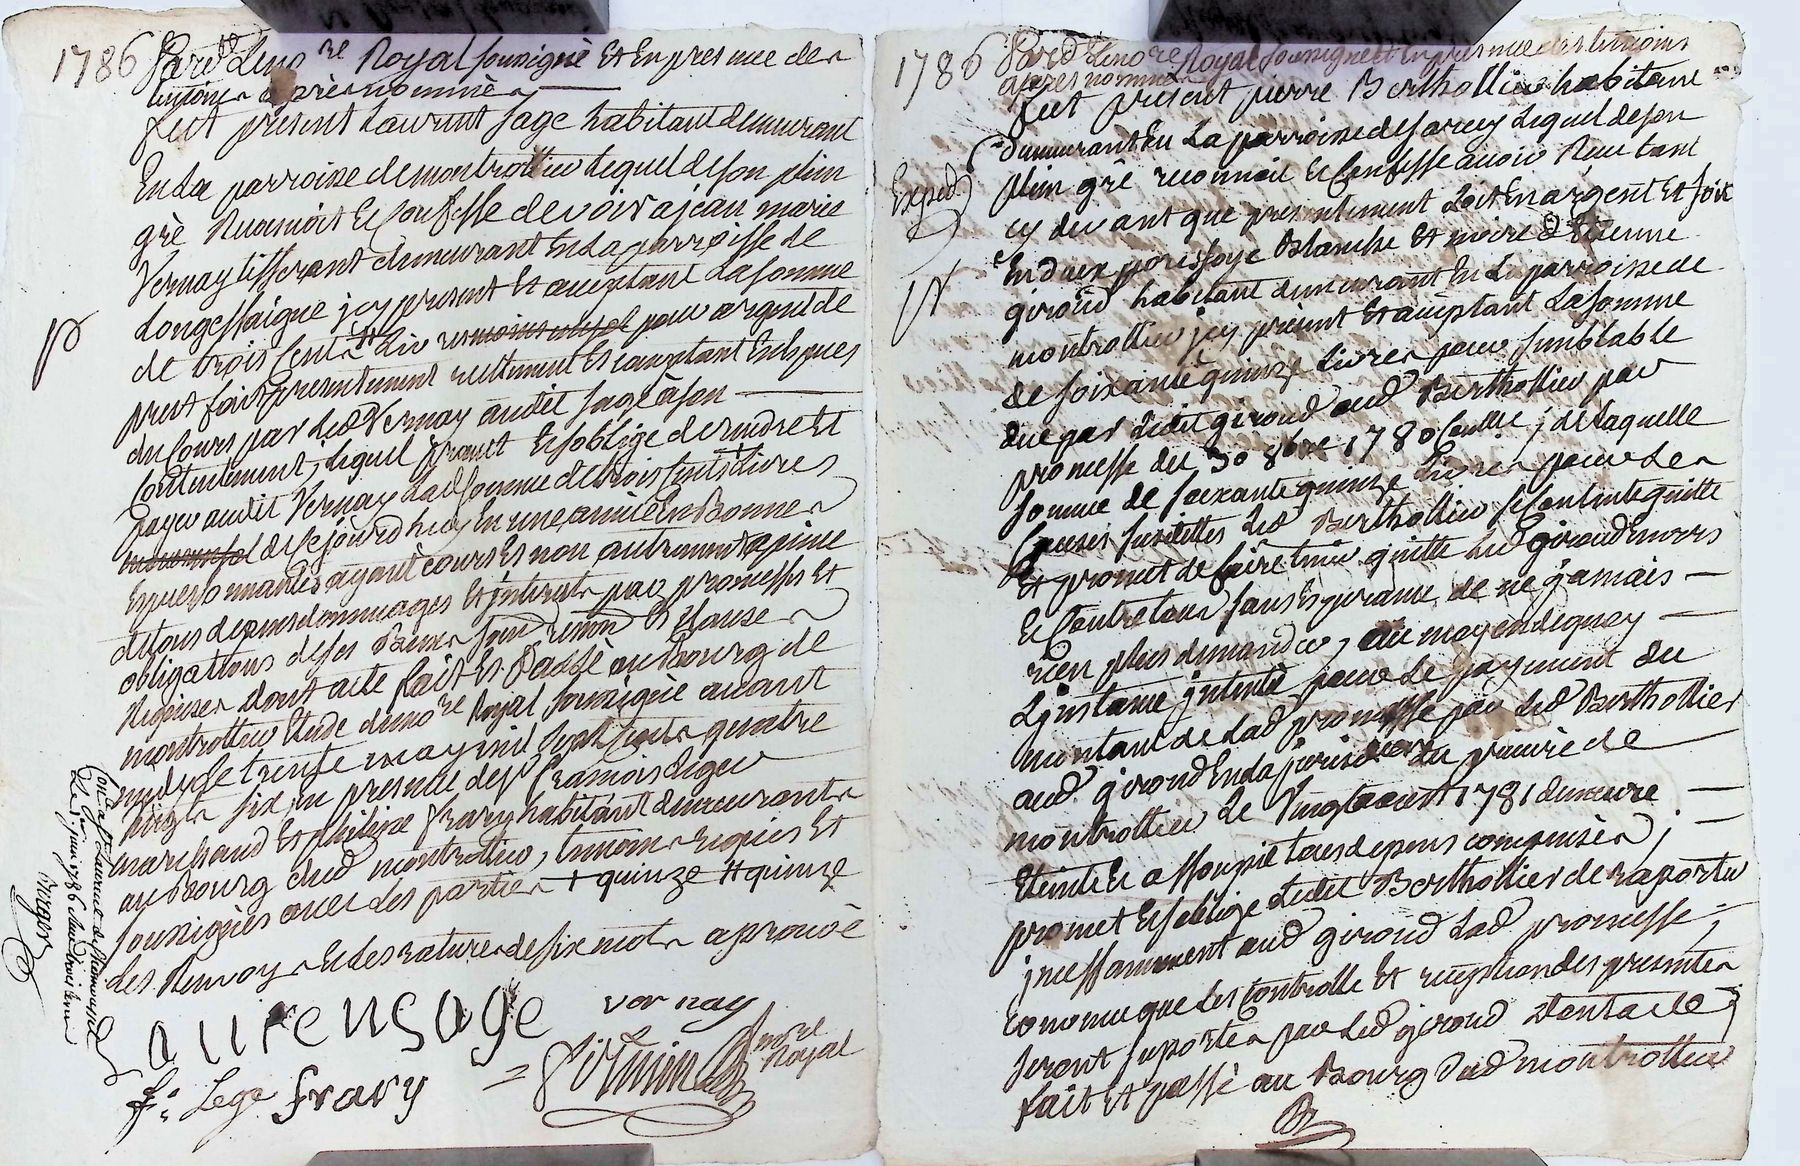 1786 Pard. Le no.re Royal soussigné Et En presence des
temoins après nommés
fut present Laurent sage habitant demeurant
En La parroisse de montrottier Lequel de son plein
gré Reconnoit Et Confesse devoir a jean marie
Vernay tisserant demeurant En La parroisse de
Longessaigne jcy present Et acceptant La somme
de trois Cents Livres pour argent de
prest fait presentement reellement Et comptant En Espces
du Cours par Led. Vernay audit sage a son
Contentement, Lequel promet Et s'oblige de rendre Et
payer audit Vernay Lad. somme de trois Cents Livres
de Ce jourd'huy En une année En Bonnes
Especes sonnantes ayant cours Et non autrement a peine
de tous depens dommages Et jnterets par promesses Et
obligations de ses Biens soum. renon. Et Clauses
Requises dont acte fait Et Passé au Bourg de
montrottier Etude dud. no.re Royal soussigné avant
midy Le trente may mil sept Cents quatre
vingts six en presence de s.r françois Lege
marchand Et philippe frary habitant demeurants
au Bourg dud. montrottier, temoins requis Et
soussignés avec Les parties + quinze # quinze
Les Renvoys Et Les ratures de six mots aprouvé
Laurensage vernay
f. Lege frary
no.re Royal
1786 Pard. Le no.re Royal soussigné Et En presence des temoins
apres nommés
fut present pierre Berthollier habitant
demeurant En La parroisse de sarcey Lequel de son
Exped.
plein gré reconnoit Et Confesse avoir Reçu tant
cy devant que presentement soit En argent Et soit
En deux Blanche Et noire d'Etienne
giroud habitant demeurant En La parroisse de
montrottier jcy present Et acceptant La somme
de soixante quinze Livres pour semblable
due par Ledit giroud aud. Berthollier par
promesse du 30 8bre 1780 Contlé ; de Laquelle
somme de soixante quinze Livres pour Les
Causes susdittes Led. Berthollier se Contente quitte
Et promet de faire tenir quitte Led. giroud Envers
Et Contre tous sans Esperance de ne jamais
rien plus demander, au moyen de quoy
L'jnstance jntentée pour Le payement du
montant de Lad. promesse par Led. Berthollier
aud. giroud En La jurisdiction du prieuré de
montrottier Le Vingt aout 1781 demeure
Eteinte Et assoupie tous depens compensés ;
promet Et s'oblige Ledit Berthollier de raporter
jncessamment aud. giroud Lad. promesse ;
Convenu que Les Controlle Et receptions des presentes
seront suportés par Led. giroud Dont acte ;
fait Et passé au Bourg Dud. montrottier